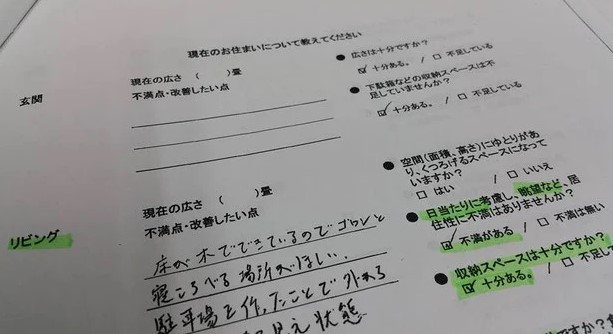 現在のお住まいについて教えてください
玄関
現在の広さ ( )畳
不満点・改善したい点
● 広さは十分ですか?
☑ 十分ある。 / □ 不足している
● 下駄箱などの収納スペースは不
足していませんか?
☑ 十分ある。 / □ 不足している
リビング
現在の広さ ( )畳
不満点・改善したい点
床が木でできているのでゴロンと
寝ころべる場所がほしい。
駐車場を作ったことで外から
見え状態
● 空間(面積、高さ)にゆとりがあ
り、くつろげるスペースになって
いますか?
□ はい / □ いいえ
● 日当たりに考慮し、眺望など、居
住性に不満はありませんか?
☑ 不満がある / □ 不満は無い
● 収納スペースは十分ですか?
☑ 十分ある。 / □ 不足し